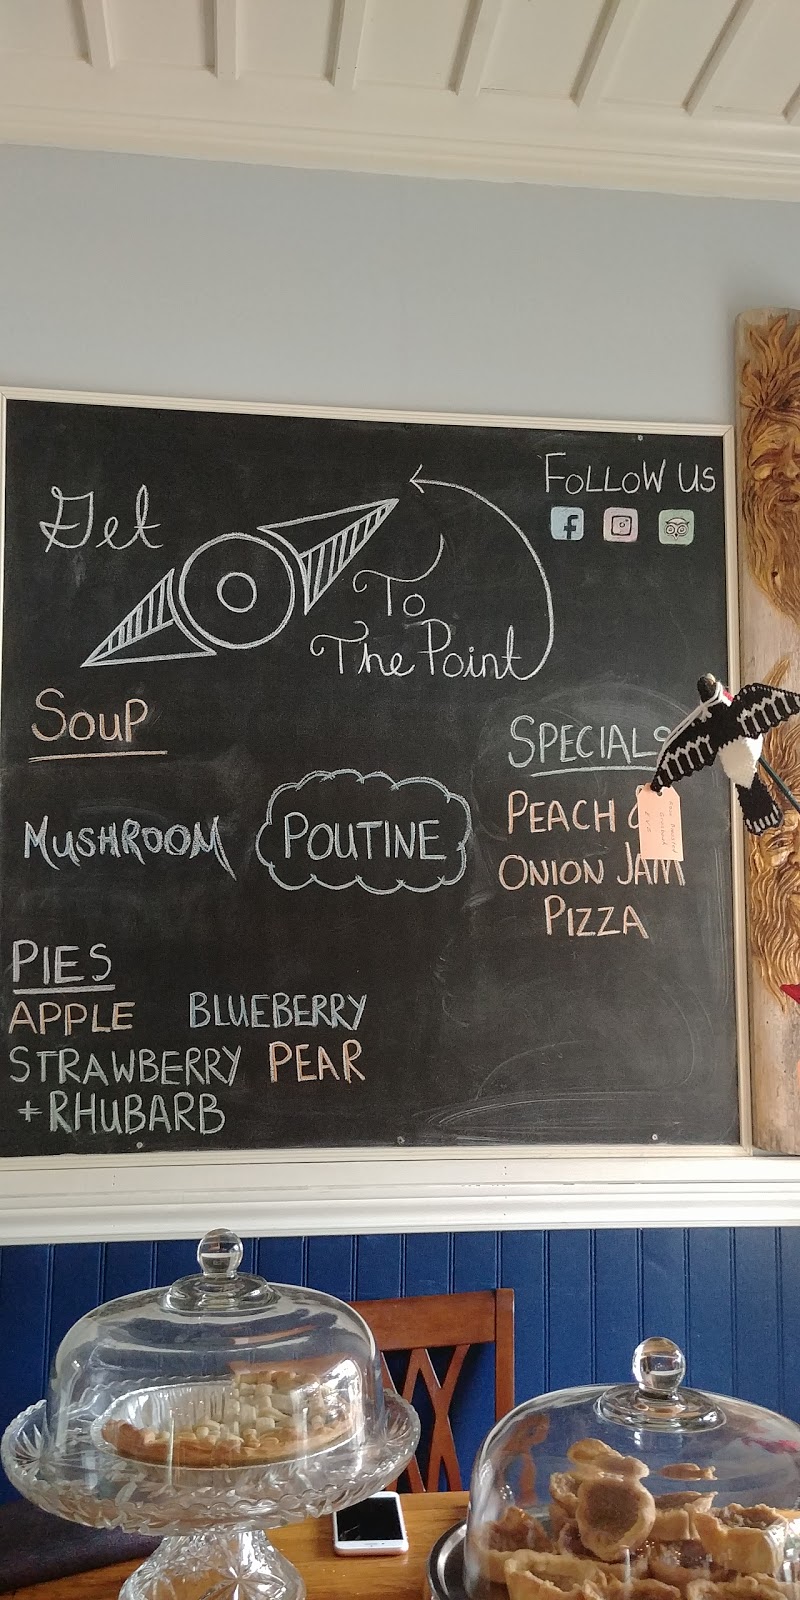 Get
To
The Point
FOLLOW US
SOUP
MUSHROOM
POUTINE
SPECIALS
PEACH &
ONION JAM
PIZZA
PIES
APPLE BLUEBERRY
STRAWBERRY PEAR
+ RHUBARB